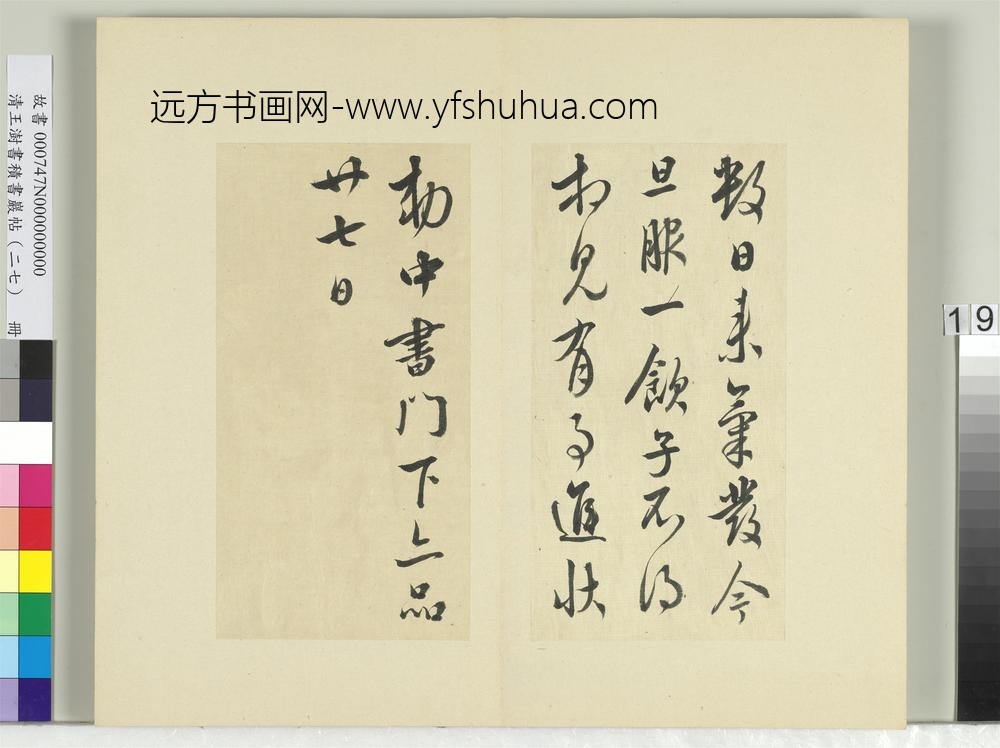 远方书画网-www.yfshuhua.com
故書 000747N000000000
清王澍書積書巖帖（二七） 冊
19
數日來氣發今
旦服一飲子不得
相見有事進狀
勅中書門下三品
廿七日